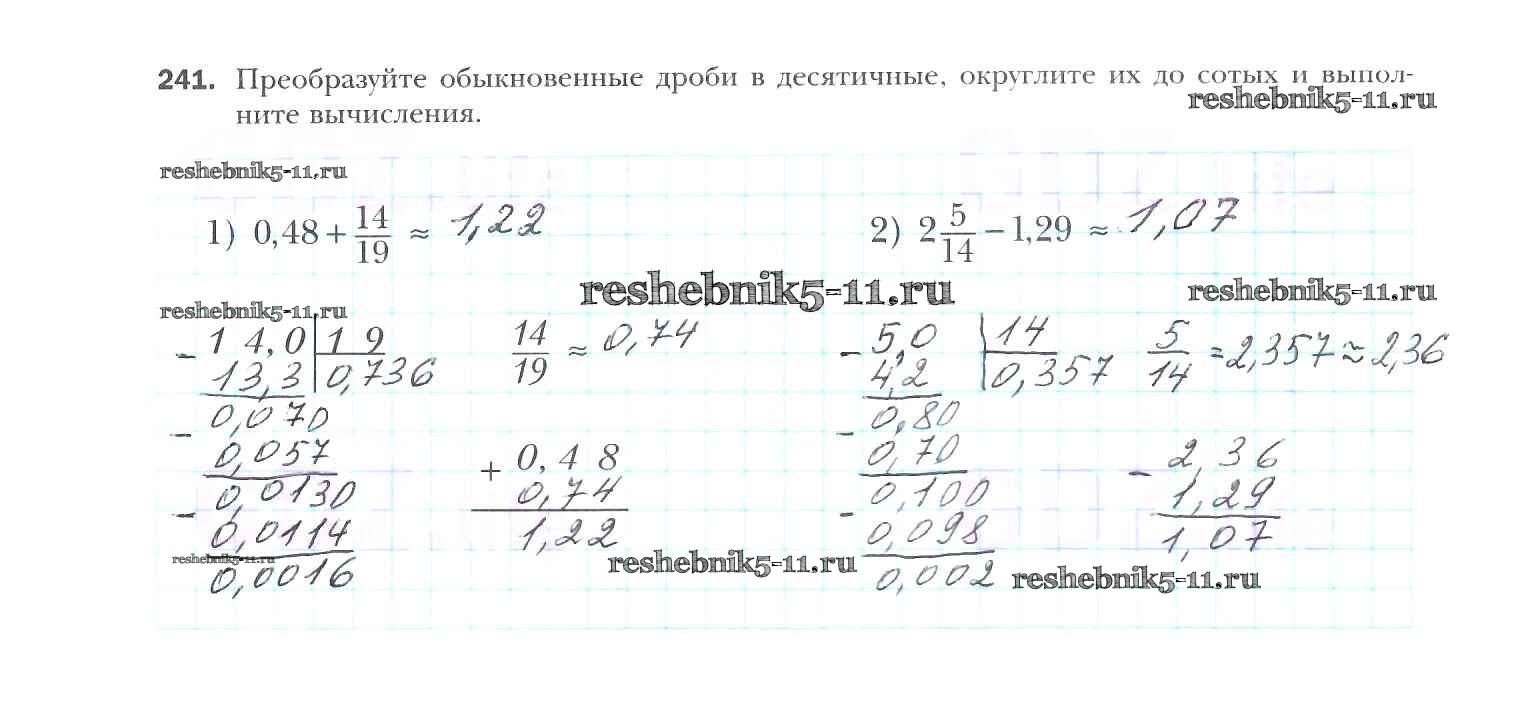 241. Преобразуйте обыкновенные дроби в десятичные, округлите их до сотых и выпол-
reshebnik5-11.ru
ните вычисления.
reshebnik5-11.ru
1) 0,48 + 14/19 ≈ 1,22
2) 2 5/14 − 1,29 ≈ 1,07
reshebnik5-11.ru
reshebnik5-11.ru
reshebnik5-11.ru
− 14,0 | 19
13,3 | 0,736
0,070
− 0,057
0,0130
− 0,0114
reshebnik5-11.ru
0,0016
14/19 ≈ 0,74
+ 0,48
0,74
1,22
reshebnik5-11.ru
− 5,0 | 14
4,2 | 0,357
0,80
− 0,70
0,100
− 0,098
0,002
5/14 = 2,357 ≈ 2,36
− 2,36
1,29
1,07
reshebnik5-11.ru